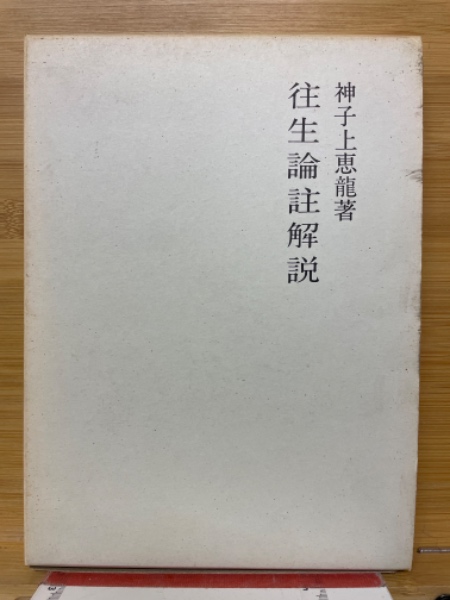 神子上恵龍著
往生論註解説